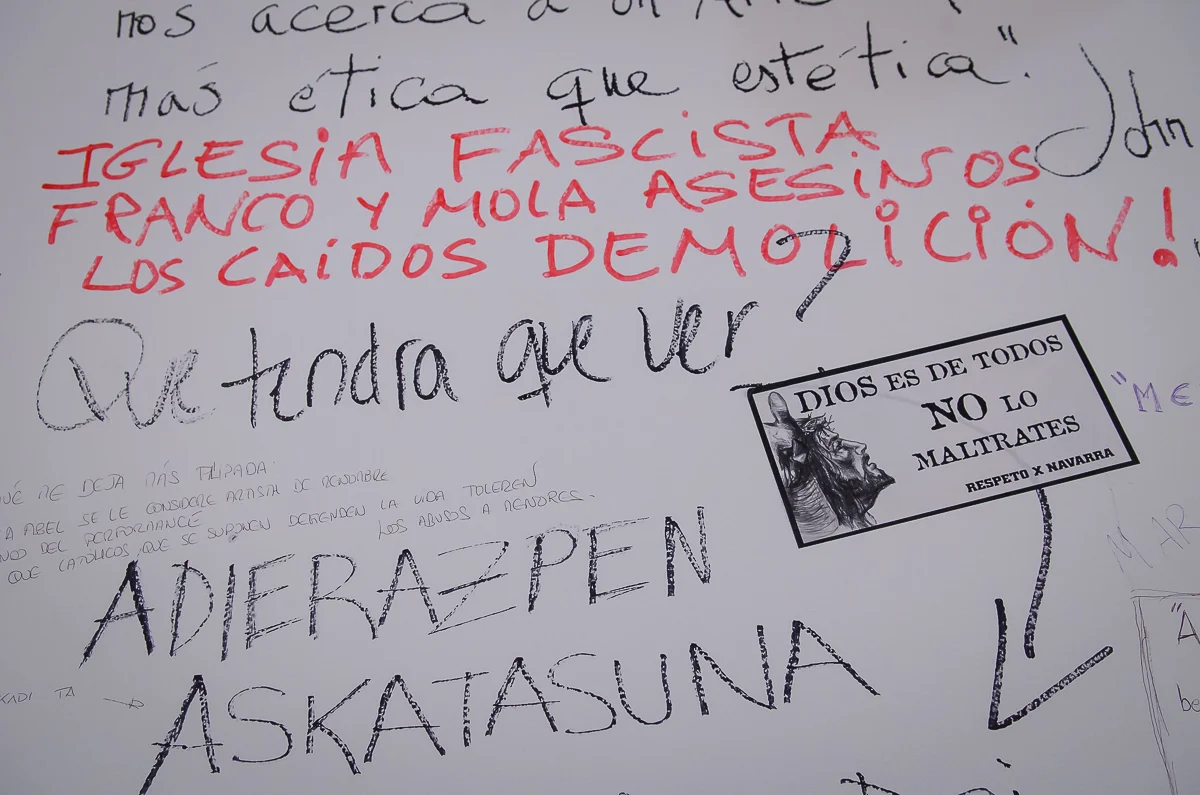 nos acerca a un
más ética que estética".
John
IGLESIA FASCISTA
FRANCO Y MOLA ASESINOS
LOS CAÍDOS DEMOLICIÓN!
Que tendra que ver?
DIOS ES DE TODOS
NO LO
MALTRATES
RESPETO X NAVARRA
"ME
QUÉ ME DEJA MÁS FLIPADA.
A ABEL SE LE CONSIDERE ARTISTA DE RENOMBRE
DEL PERFORMANCE
QUE CATÓLICOS QUE SE SUPONEN DEFIENDEN LA VIDA TOLEREN
LOS ABUSOS A MENORES.
ADIERAZPEN
ASKATASUNA
MAR
TA
"A
be